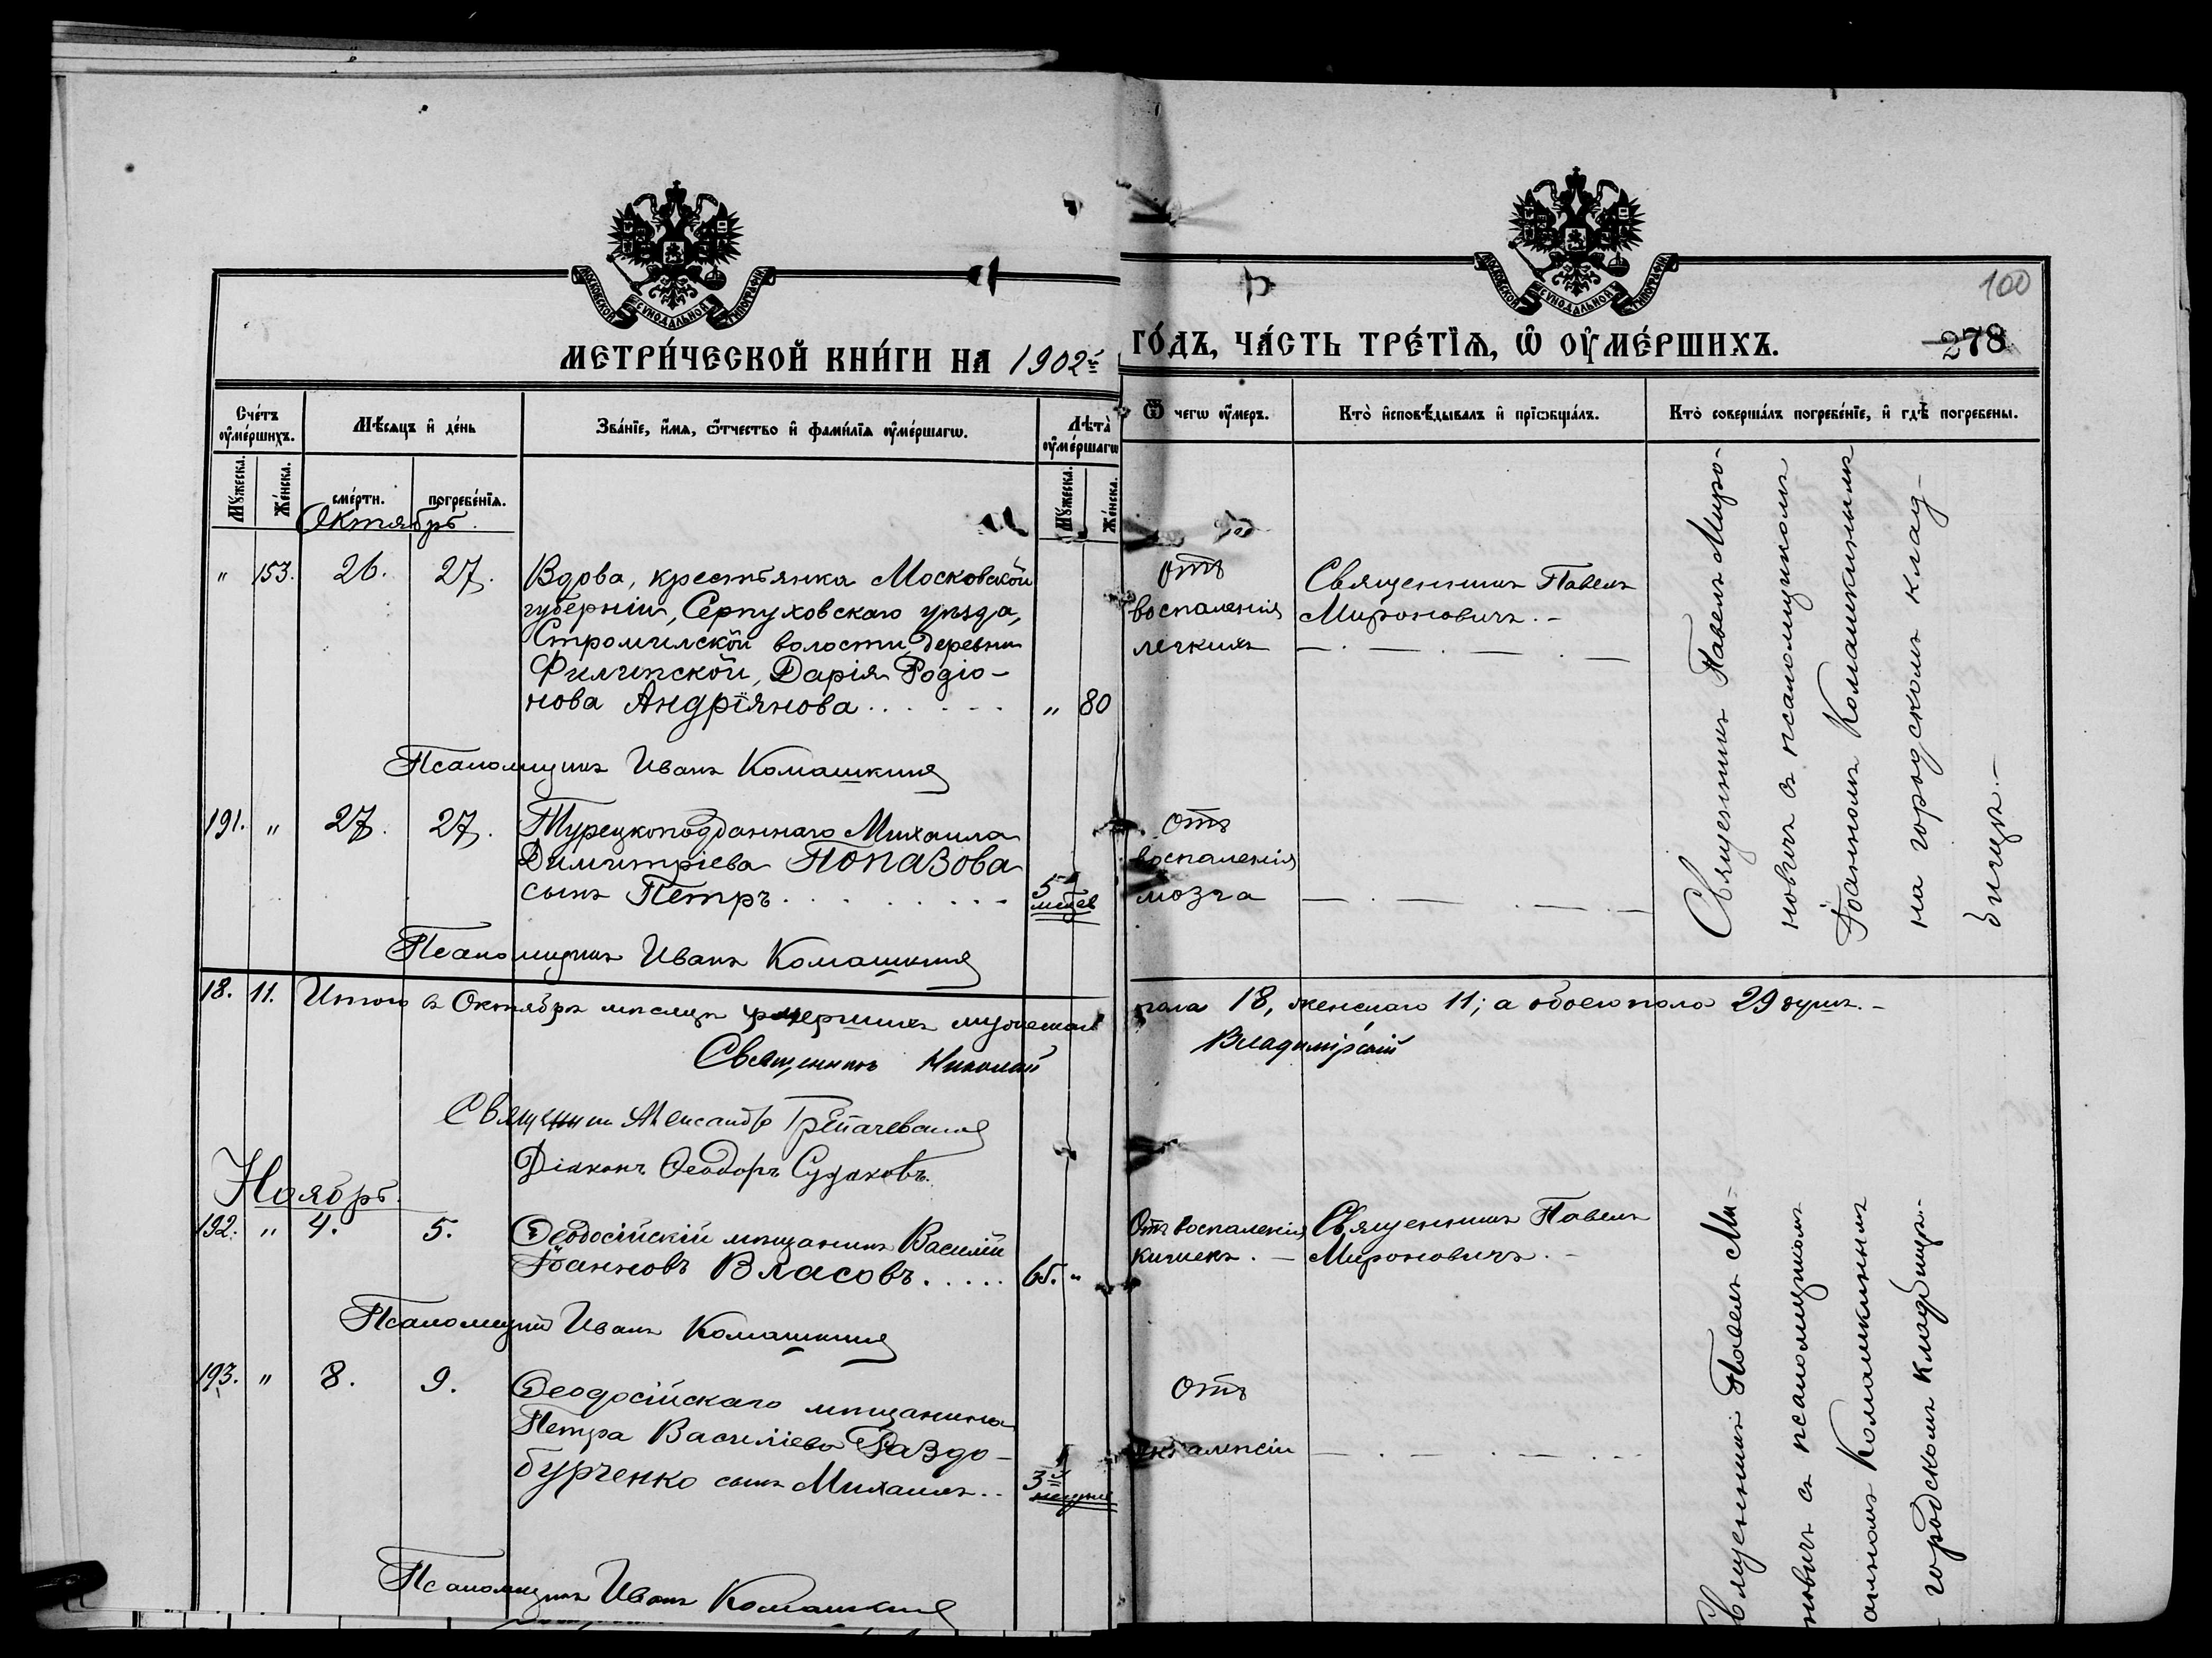 МОСКОВСКОЙ СУНОДАЛЬНОЙ ТИПОГРАФІИ
МОСКОВСКОЙ СУНОДАЛЬНОЙ ТИПОГРАФІИ
100
МЕТРИ́ЧЕСКОЙ КНИ́ГИ НА 1902й
ГО́ДЪ, ЧА́СТЬ ТРЕ́ТЇѦ, Ѡ ОУМЕ́РШИХЪ.
278
Счетъ оумершихъ.
Мѣсяцъ и день
Званіе, имя, отчество и фамилія оумершагѡ.
Лѣта оумершагѡ
Ѿ чегѡ оумеръ.
Кто исповѣдывалъ и прїѡбщалъ.
Кто совершалъ погребеніе, и гдѣ погребены.
Мужеска.
Женска.
смерти.
погребенїя.
Мужеска.
Женска.
Октябрь.
" 153. 26. 27. Вдова, крестьянка Московской
губерніи, Серпуховскаго уѣзда,
Стромилской волости деревни
Филипской, Дарія Родіо-
нова Андріянова . . . . . " 80
Отъ
воспаленія
легкихъ
Священникъ Павелъ
Мироновичъ. -
Псаломщикъ Иванъ Комашкинъ
191. " 27. 27. Турецкоподданнаго Михаила
Димитріева Попазова
сынъ Петръ . . . . . . . . 5 мѣсяцев
Отъ
воспаленія
мозга
Псаломщикъ Иванъ Комашкинъ
Священникъ Павелъ Миро-
новичъ съ псаломщикомъ
Іоанномъ Комашкинымъ
на городскомъ клад-
бищѣ. -
18. 11. Итого въ Октябрѣ мѣсяцѣ умершихъ мужеска
пола 18, женскаго 11; а обоего пола 29 душъ. -
Священникъ Николай
Владимірскій
Священникъ Александръ
Діаконъ Ѳеодоръ Судаковъ.
Ноябрь.
192. " 4. 5. Ѳеодосійскій мѣщанинъ Василій
Іоанновъ Власовъ . . . . . 65. "
Отъ воспаленія
кишекъ. -
Священникъ Павелъ
Мироновичъ. -
Псаломщикъ Иванъ Комашкинъ
193. " 8. 9. Ѳеодосійскаго мѣщанина
Петра Василіева Раздо-
бурченко сынъ Михаилъ . . 3 недѣли
Отъ
еклампсіи
Псаломщикъ Иванъ Комашкинъ
Священникъ Павелъ Ми-
новичъ съ псаломщикомъ
анномъ Комашкинымъ
городскомъ кладбищѣ. -